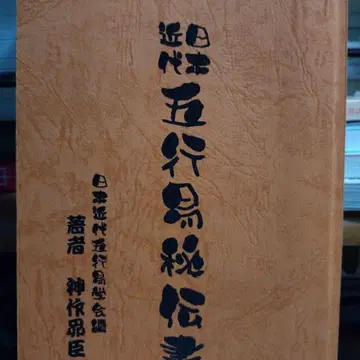 日本
近代
五行易秘伝書
日本近代五行易学会編
著者 神作昻臣